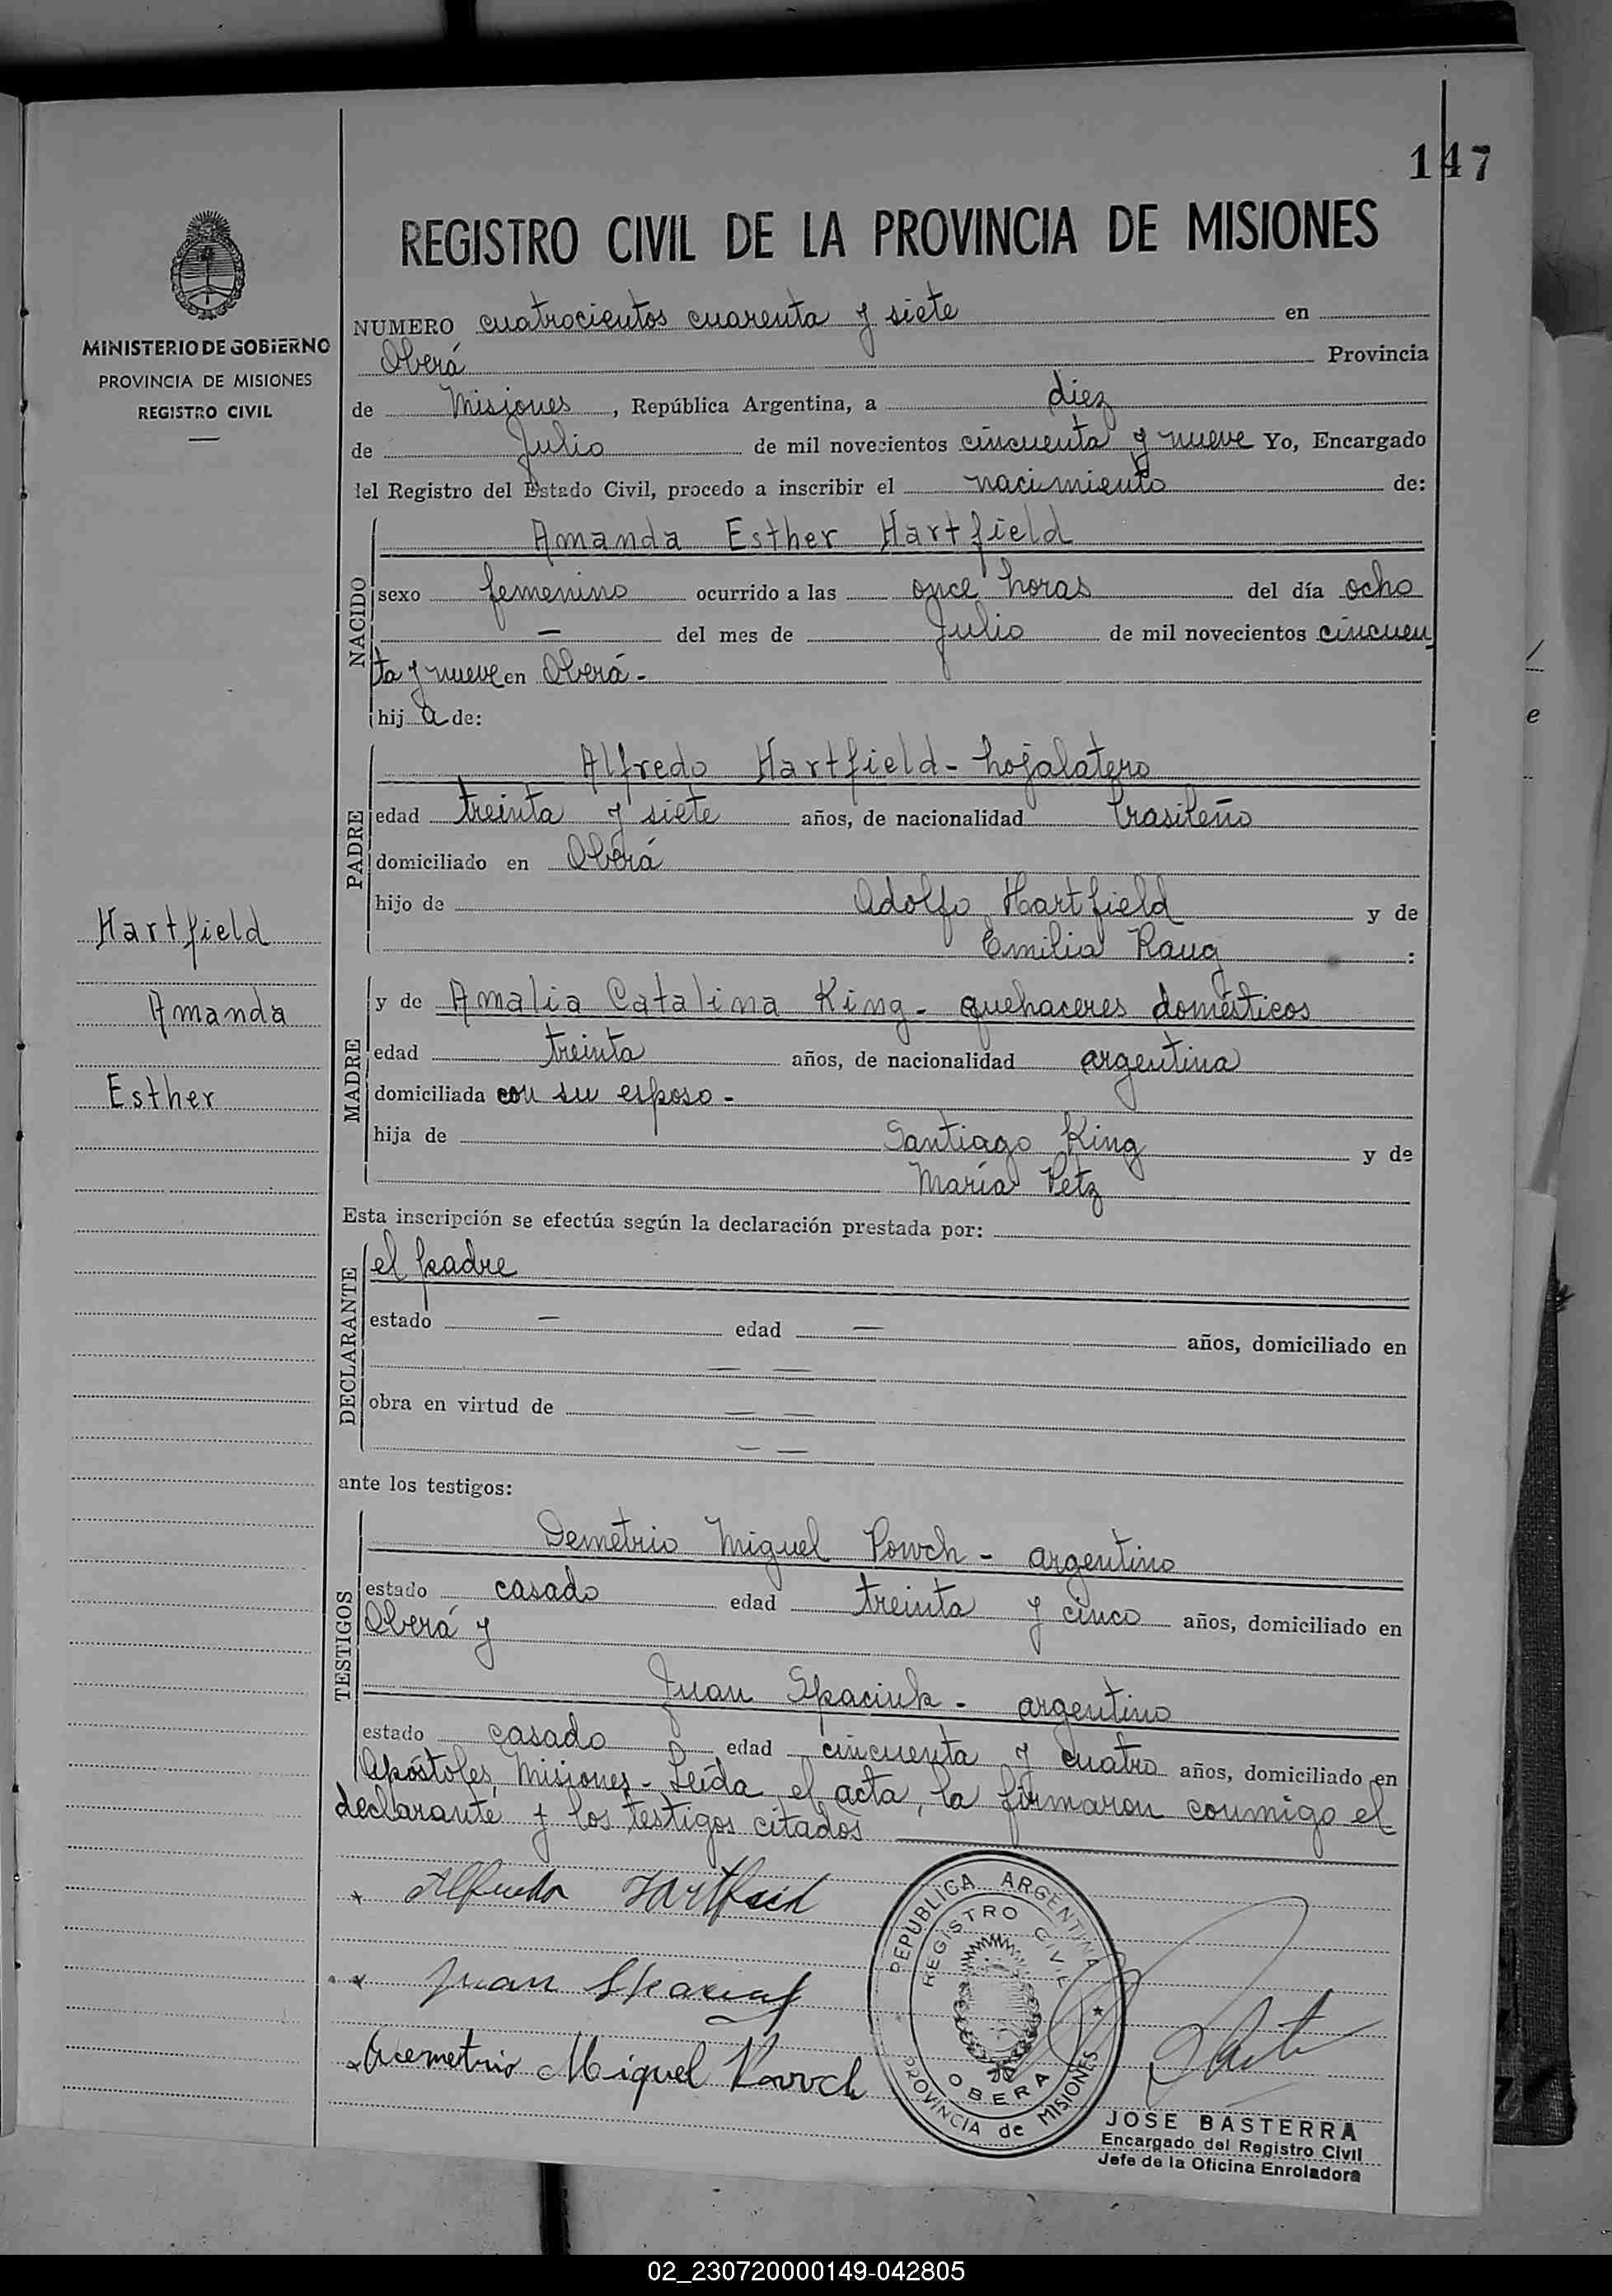 147
REGISTRO CIVIL DE LA PROVINCIA DE MISIONES
MINISTERIO DE GOBIERNO
PROVINCIA DE MISIONES
REGISTRO CIVIL
NUMERO cuatrocientos cuarenta y siete en
Oberá Provincia
de Misiones, República Argentina, a diez
de Julio de mil novecientos cincuenta y nueve Yo, Encargado
lel Registro del Estado Civil, procedo a inscribir el nacimiento de:
NACIDO
Amanda Esther Hartfield
sexo femenino ocurrido a las once horas del día ocho
— del mes de Julio de mil novecientos cincuen
ta y nueve en Oberá.-
hij a de:
PADRE
Alfredo Hartfield - hojalatero
edad treinta y siete años, de nacionalidad brasileño
domiciliado en Oberá
hijo de Adolfo Hartfield y de
Emilia Raug :
Hartfield
Amanda
Esther
MADRE
y de Amalia Catalina King - quehaceres domésticos
edad treinta años, de nacionalidad argentina
domiciliada con su esposo -
hija de Santiago King y de
María Petz
Esta inscripción se efectúa según la declaración prestada por:
DECLARANTE
el padre
estado — edad — años, domiciliado en
— —
obra en virtud de — —
— —
ante los testigos:
TESTIGOS
Demetrio Miguel Powch - argentino
estado casado edad treinta y cinco años, domiciliado en
Oberá y
Juan Spaciuk - argentino
estado casado edad cincuenta y cuatro años, domiciliado en
Apóstoles, Misiones - Leída el acta, la firmaron conmigo el
declarante y los testigos citados
x Alfredo Hartfield
x Juan
x Demetrio Miguel Powch
REPUBLICA ARGENTINA
REGISTRO CIVIL
OBERA
PROVINCIA de MISIONES
JOSE BASTERRA
Encargado del Registro Civil
Jefe de la Oficina Enroladora
02_230720000149-042805